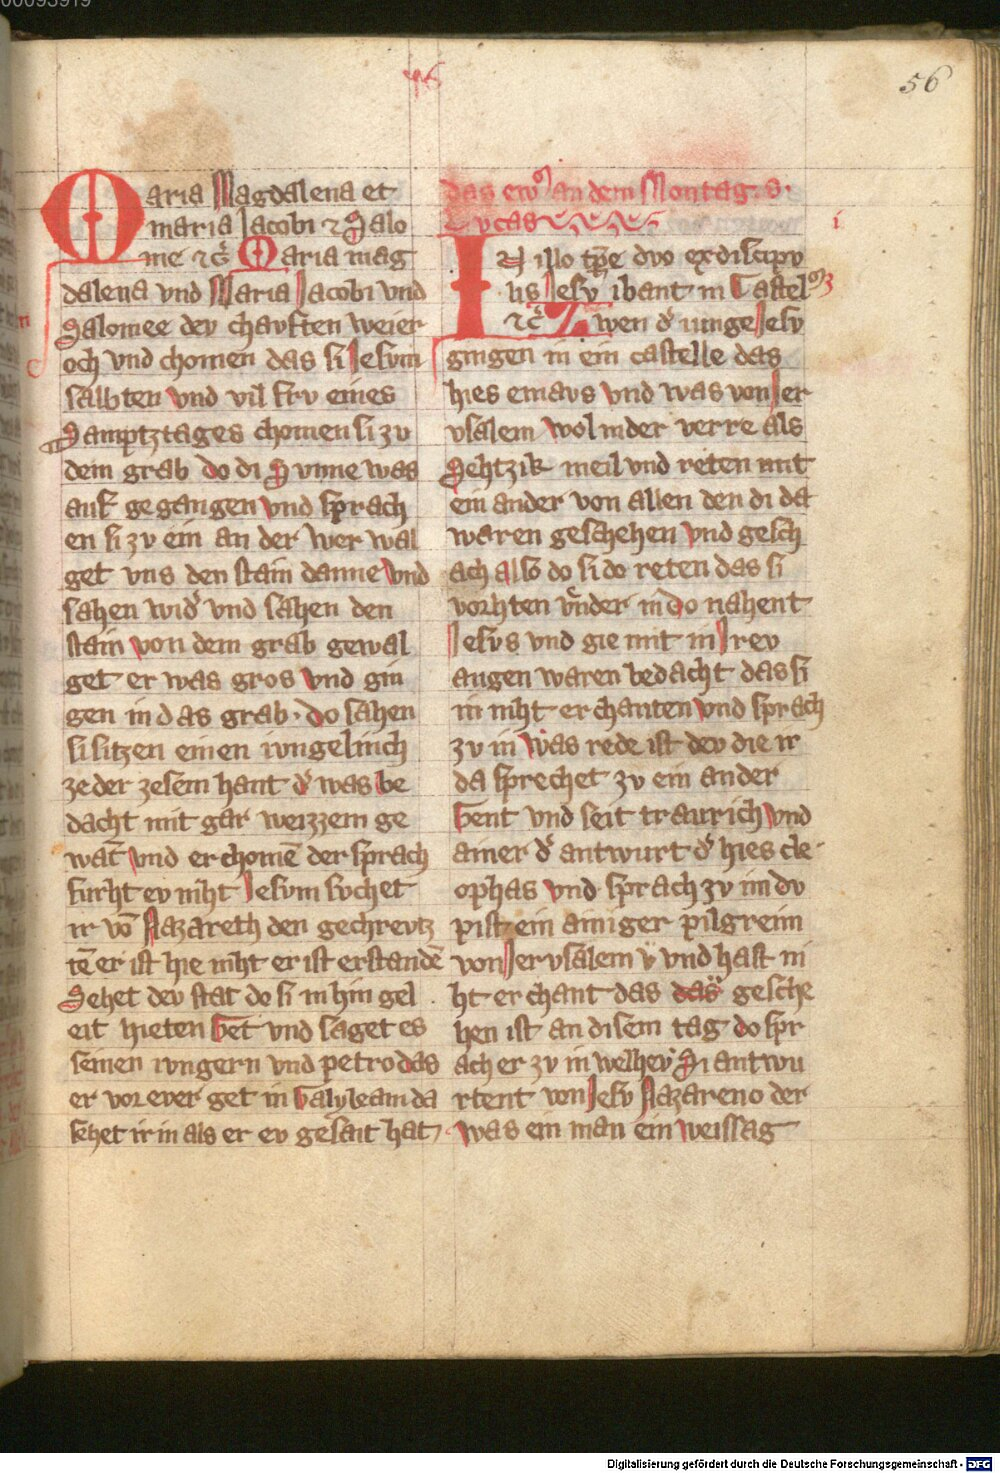 00093919
56
Maria Magdalena et
maria Jacobi ⁊ Salo
me ⁊ cͣ Maria mag
dalena vnd Maria Jacobi vnd
Salomee dev chavften weier
och vnd chomen das si Jesvm
salbten vnd vil frv eines
Samptztages chomen si zv
dem grab do di Svnne was
auf gegangen vnd sprach
en si zv ein an der wer wal
get vns den stain danne vnd
sahen wid͛ vnd sahen den
stain von dem grab gewal
get er was gros vnd gin
gen in das grab · do sahen
si sitzen einen ivngelinch
ze der zesem hant d͛ was be
dacht mit gar weizzem ge
wāt vnd er chomē der sprach
furht ev niht Jesvm svchet
ir vō Nazareth den gechrevtz
tē er ist hie niht er ist erstandē
Sehet dev stat do si in hin gel
eit hieten Get vnd saget es
seinen ivngern vnd petro das
er vor ever get in Galyleam da
sehet ir in als er ev gesait hat
das ew̄ an dem Montag. S.
Lvcas
i
IN illo tp̄e dvo ex discipv
lis Jesv ibant in Castel
⁊ cͣ Zwen d͛ iunge Jesv
gingen in ein castelle das
hies emavs vnd was von Jer
vsalem wol in der verre als
Sehtzik meil vnd reten mit
ein ander von allen den di da
waren geschehen vnd gesch
ach also do si do reten das si
vorhten vnder in do nahent
Jesvs vnd gie mit in Irev
augen waren bedacht das si
in niht erchanten vnd sprach
zv in Was rede ist dev die ir
da sprechet zv ein ander
Gent vnd seit traurich vnd
ainer d͛ antwurt d͛ hies cle
ophas vnd sprach zv im dv
pist ein ainiger pilgreim
von Jervsalem vnd hast ni
ht erchant das das gesche
hen ist an disem tag do spr
ach er zv in welhev Si antwu
rtent von Jesv Nazareno der
was ein man ein weissag
Digitalisierung gefördert durch die Deutsche Forschungsgemeinschaft - DFG